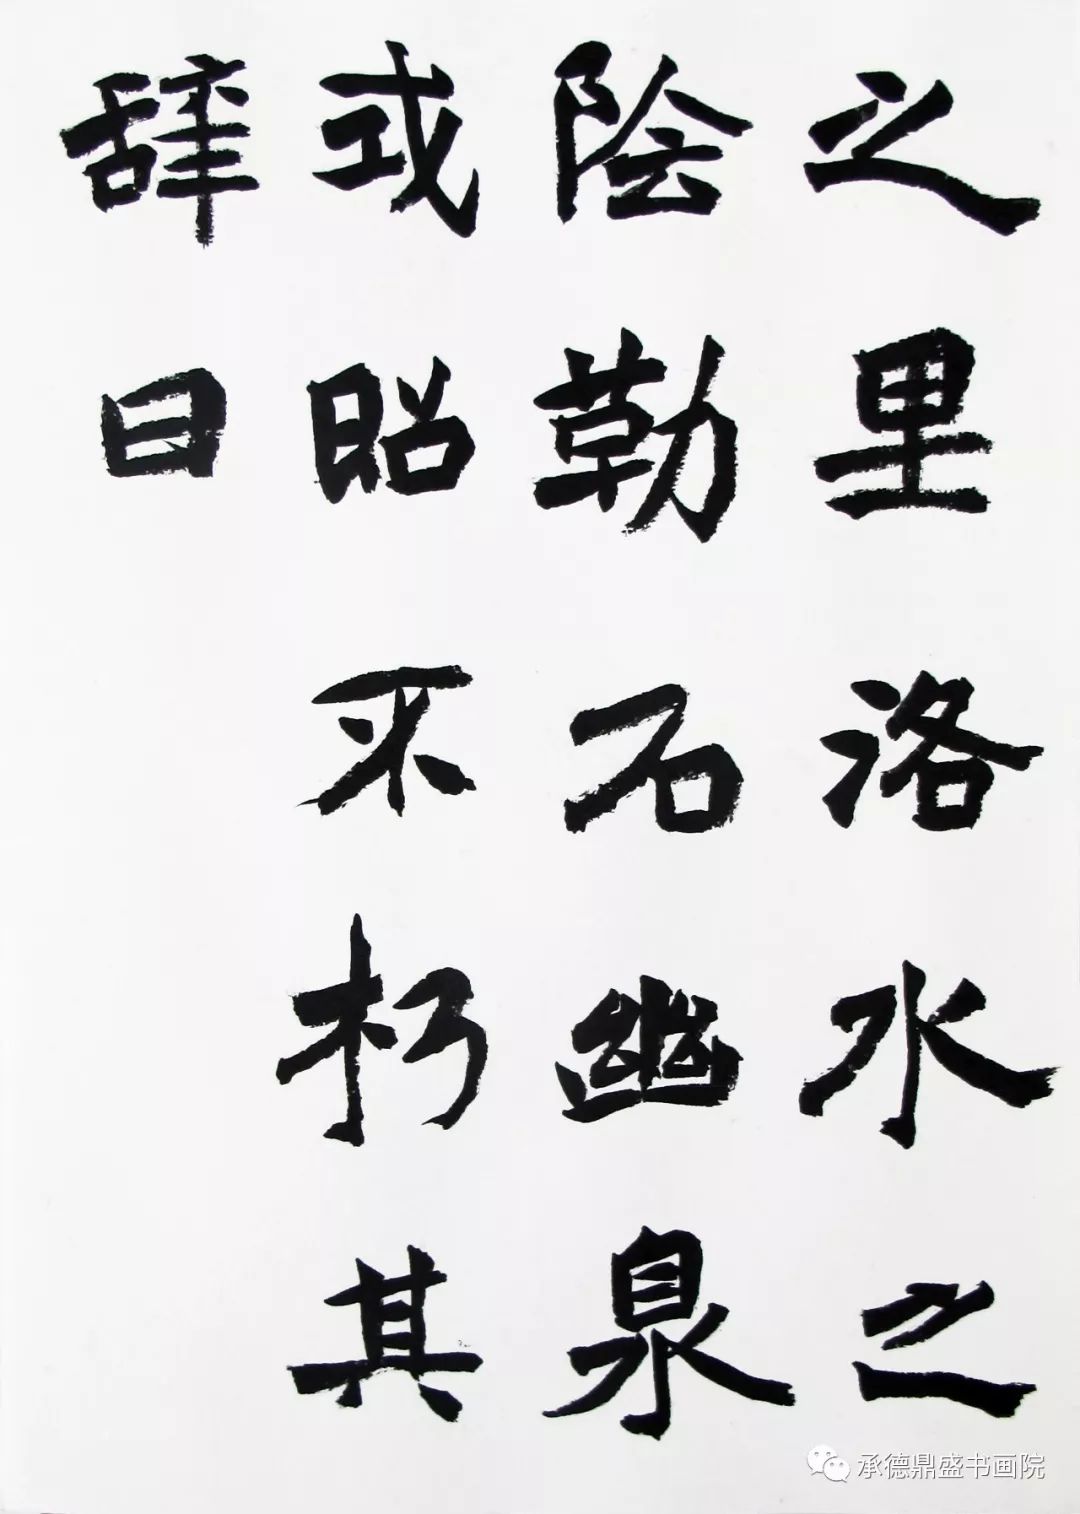 之里洛水之
陰勒石幽泉
或昭不朽其
辞曰
承德鼎盛书画院